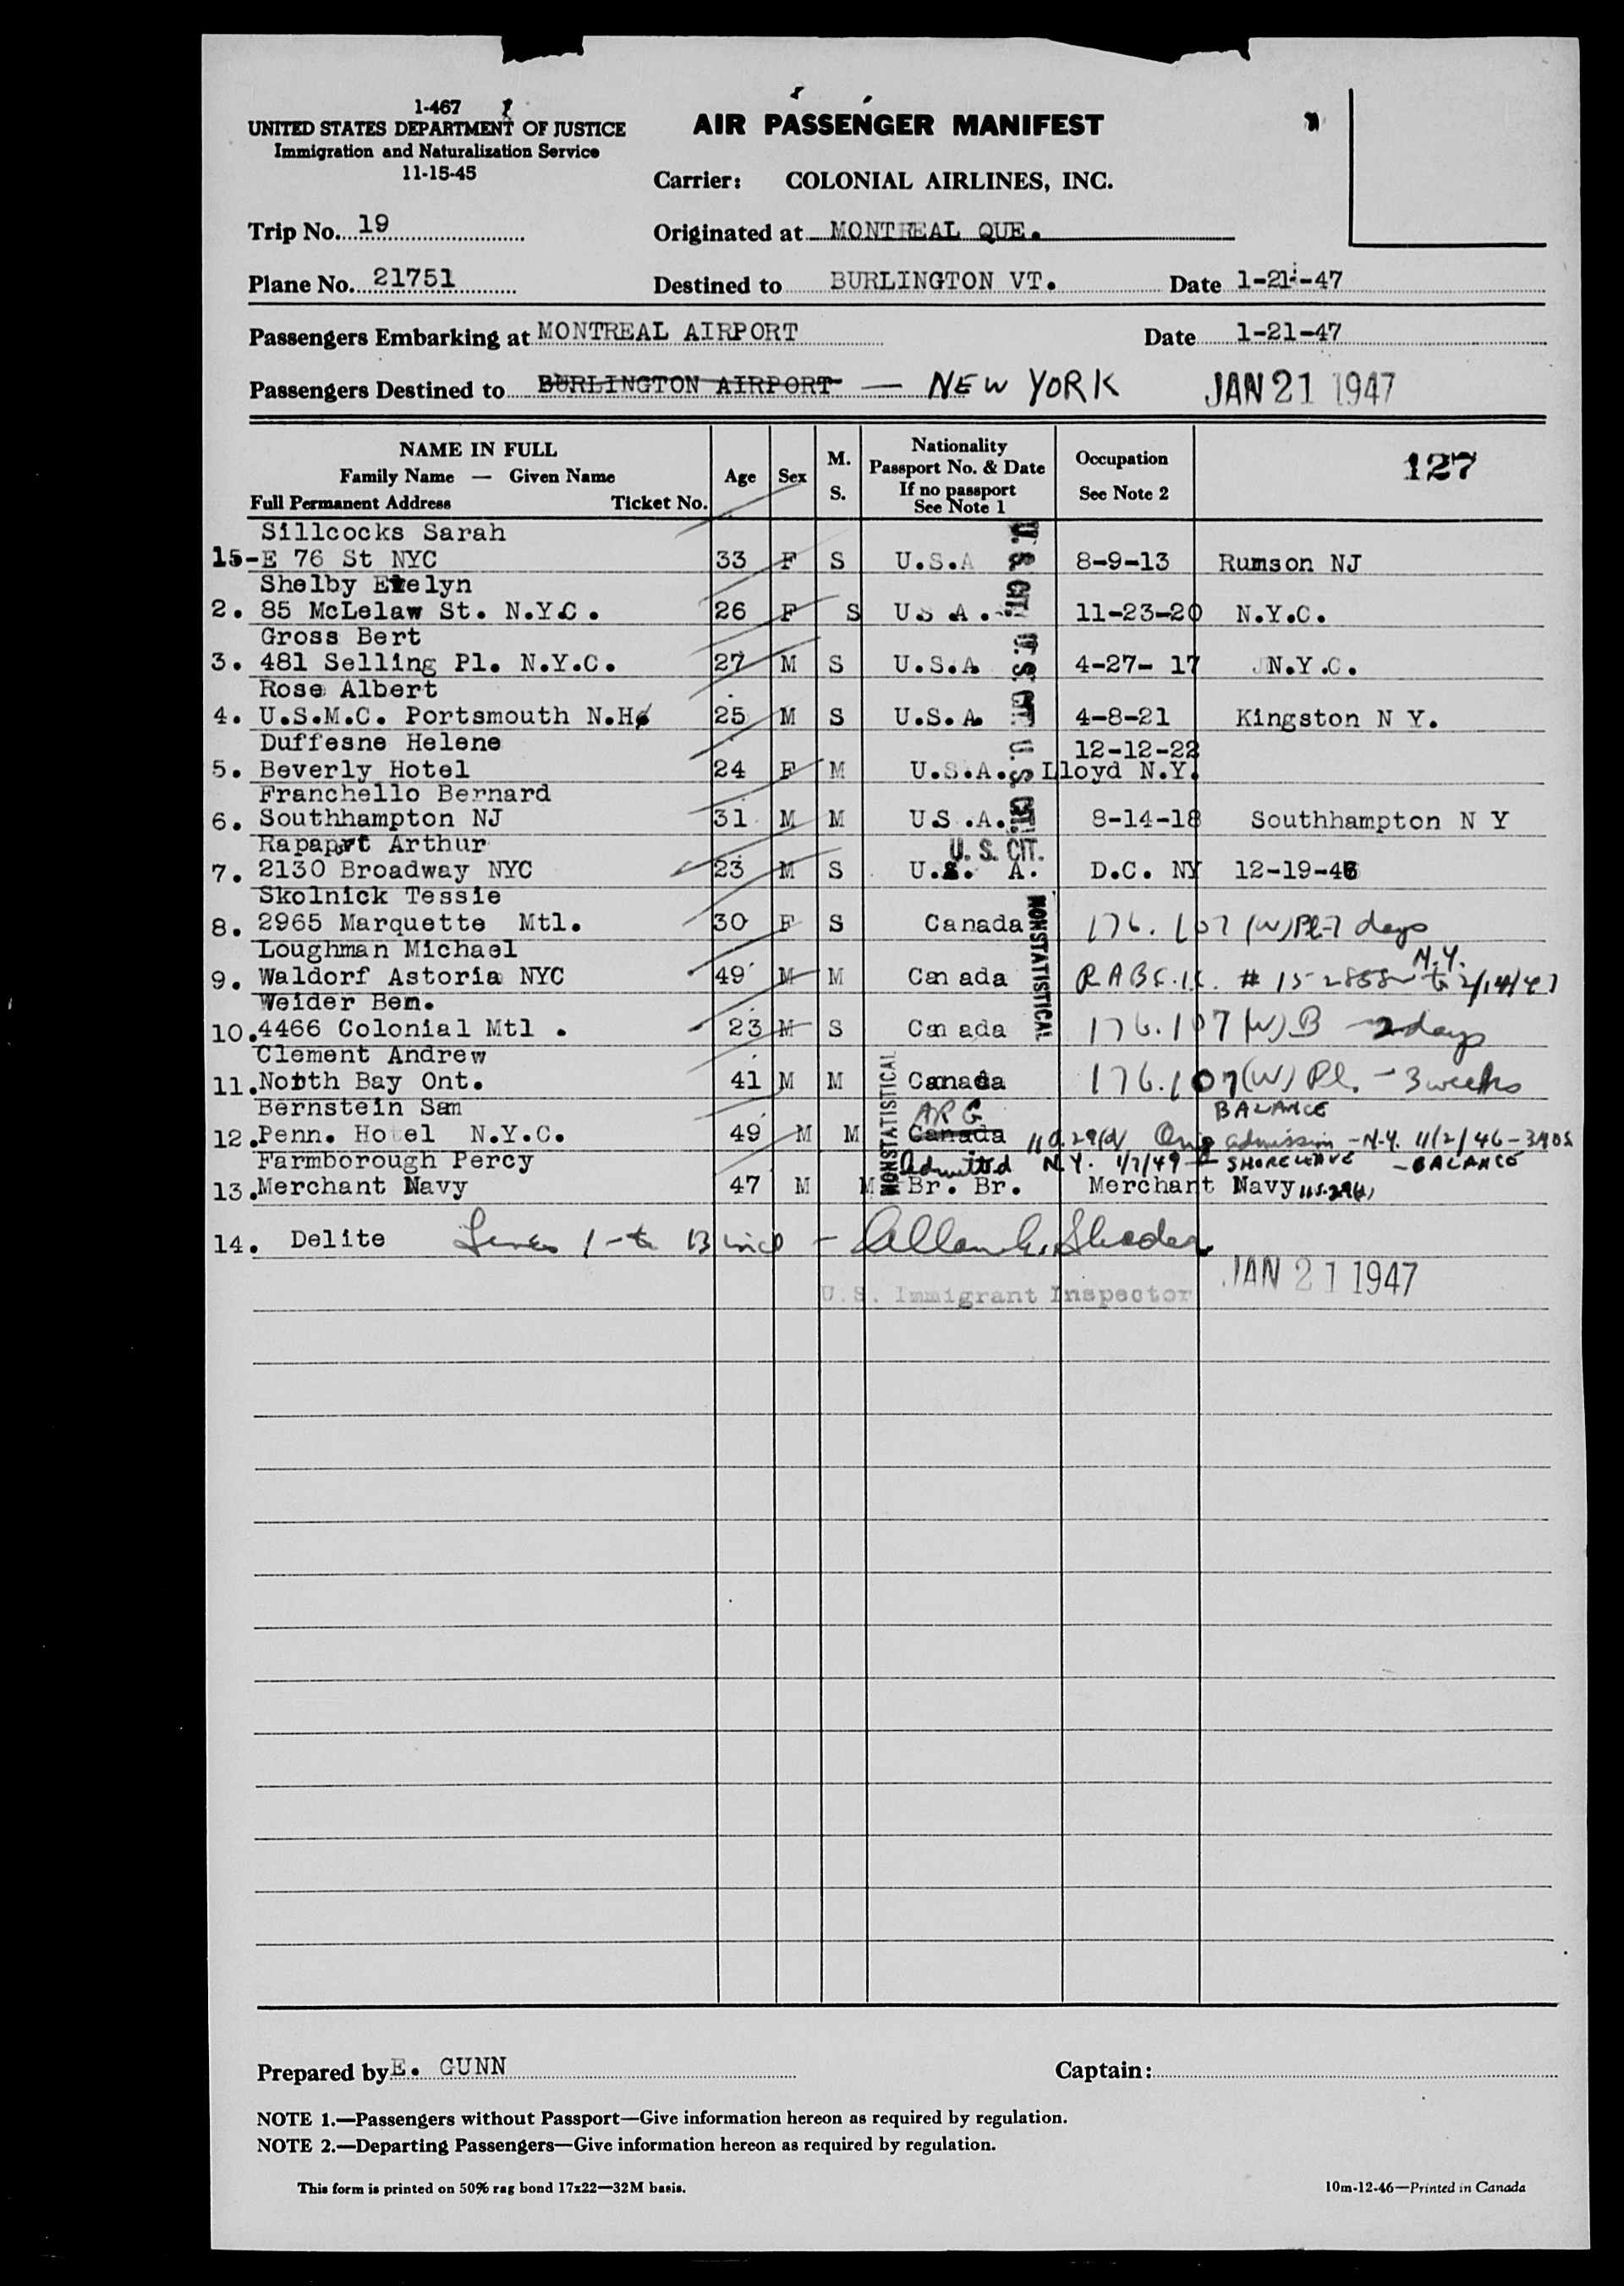 1-467
UNITED STATES DEPARTMENT OF JUSTICE
Immigration and Naturalization Service
11-15-45
AIR PASSENGER MANIFEST
Carrier: COLONIAL AIRLINES, INC.
Trip No. 19 Originated at MONTREAL QUE.
Plane No. 21751 Destined to BURLINGTON VT. Date 1-21-47
Passengers Embarking at MONTREAL AIRPORT Date 1-21-47
Passengers Destined to BURLINGTON AIRPORT — NEW YORK JAN 21 1947
NAME IN FULL
Family Name — Given Name
Full Permanent Address Ticket No.
Age Sex M. S.
Nationality
Passport No. & Date
If no passport
See Note 1
Occupation
See Note 2
127
Sillcocks Sarah
15-E 76 St NYC 33 F S U.S.A U.S. CIT. 8-9-13 Rumson NJ
Shelby Evelyn
2. 85 McLelaw St. N.Y.C. 26 F S U S A. 11-23-20 N.Y.C.
Gross Bert
3. 481 Selling Pl. N.Y.C. 27 M S U.S.A U.S. CIT. 4-27- 17 N.Y.C.
Rose Albert
4. U.S.M.C. Portsmouth N.H. 25 M S U.S.A. 4-8-21 Kingston N Y.
Duffesne Helene 12-12-22
5. Beverly Hotel 24 F M U.S.A. U.S. CIT. Lloyd N.Y.
Franchello Bernard
6. Southhampton NJ 31 M M U.S.A. 8-14-18 Southhampton N Y
Rapaprt Arthur U. S. CIT.
7. 2130 Broadway NYC 23 M S U.S. A. D.C. NY 12-19-46
Skolnick Tessie
8. 2965 Marquette Mtl. 30 F S Canada NONSTATISTICAL 176.107 (W) Pl-7 days
Loughman Michael N.Y.
9. Waldorf Astoria NYC 49 M M Can ada to 2/14/47
Weider Ben.
10. 4466 Colonial Mtl . 23 M S Can ada 176.107 (W) B - 2 days
Clement Andrew
11. North Bay Ont. 41 M M Canada NONSTATISTICAL 176.107 (W) Pl. - 3 weeks
Bernstein Sam ARG BALANCE
12. Penn. Hotel N.Y.C. 49 M M Canada 110.29(d) Orig admission - N.Y. 11/2/46 - 3 MOS
Farmborough Percy Admitted N.Y. 1/7/49 - SHORE LEAVE - BALANCE
13. Merchant Navy 47 M M Br. Br. Merchant Navy
14. Delite Lines 1 - to 13 incl -
U.S. Immigrant Inspector JAN 21 1947
Prepared by E. GUNN Captain:
NOTE 1.—Passengers without Passport—Give information hereon as required by regulation.
NOTE 2.—Departing Passengers—Give information hereon as required by regulation.
This form is printed on 50% rag bond 17x22—32M basis. 10m-12-46—Printed in Canada